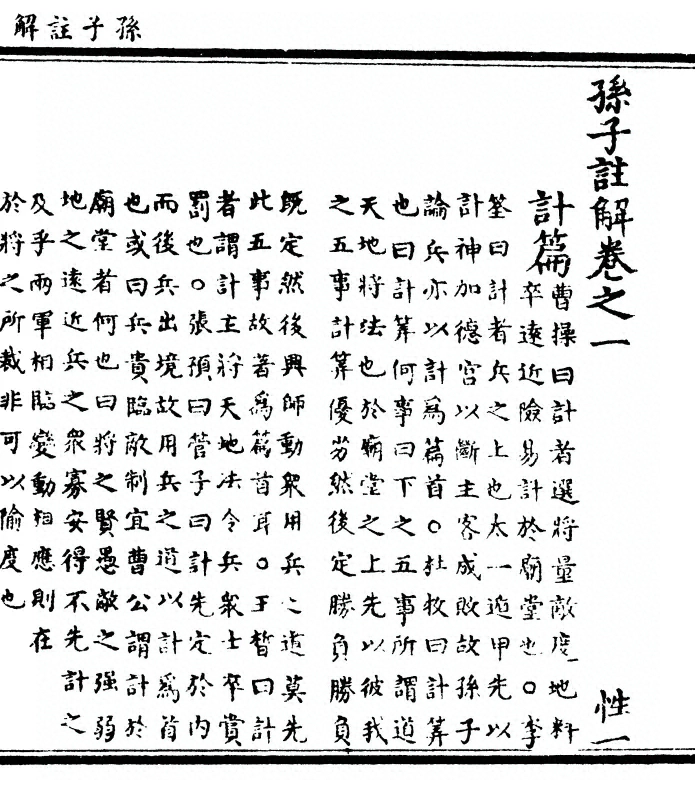 孫子註解
孫子註解卷之一
性一
計篇
曹操曰計者選將量敵度地料
卒遠近險易計於廟堂也○李
筌曰計者兵之上也太一遁甲先以
計神加德宮以斷主客成敗故孫子
論兵亦以計爲篇首○杜牧曰計筭
也曰計筭何事曰下之五事所謂道
天地將法也於廟堂之上先以彼我
之五事計筭優劣然後定勝負勝負
既定然後興師動衆用兵之道莫先
此五事故著爲篇首耳○王晳曰計
者謂計主將天地法令兵衆士卒賞
罰也○張預曰管子曰計先定於內
而後兵出境故用兵之道以計爲首
也或曰兵貴臨敵制宜曹公謂計於
廟堂者何也曰將之賢愚敵之强弱
地之遠近兵之衆寡安得不先計之
及乎兩軍相臨變動相應則在
於將之所裁非可以隃度也